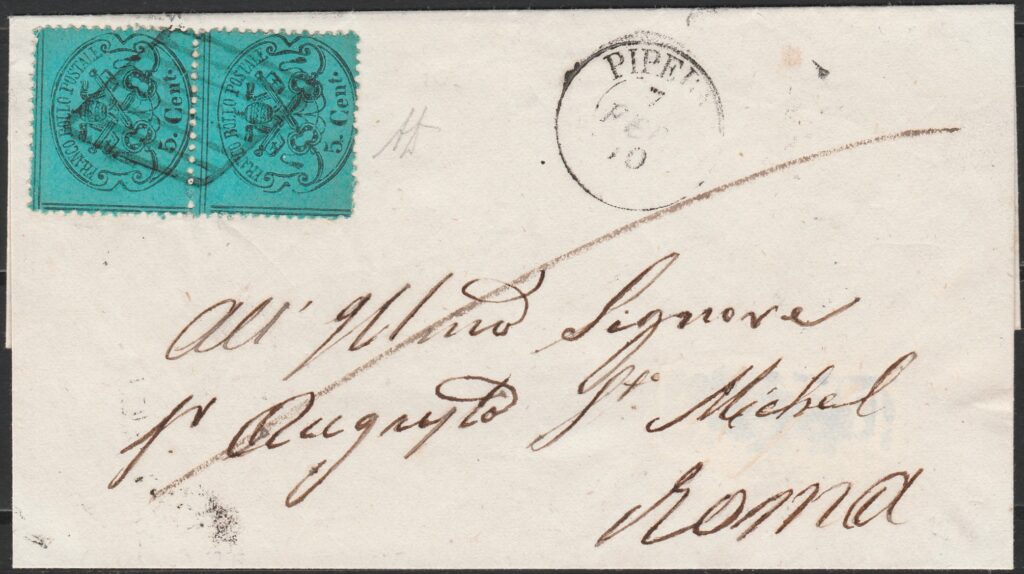 FRANCO BOLLO POSTALE
5 Cent.
FRANCO BOLLO POSTALE
5 Cent.
PIPER
7
FEB
70
All' Illmo Signore
Sr Augusto St. Michel
Roma